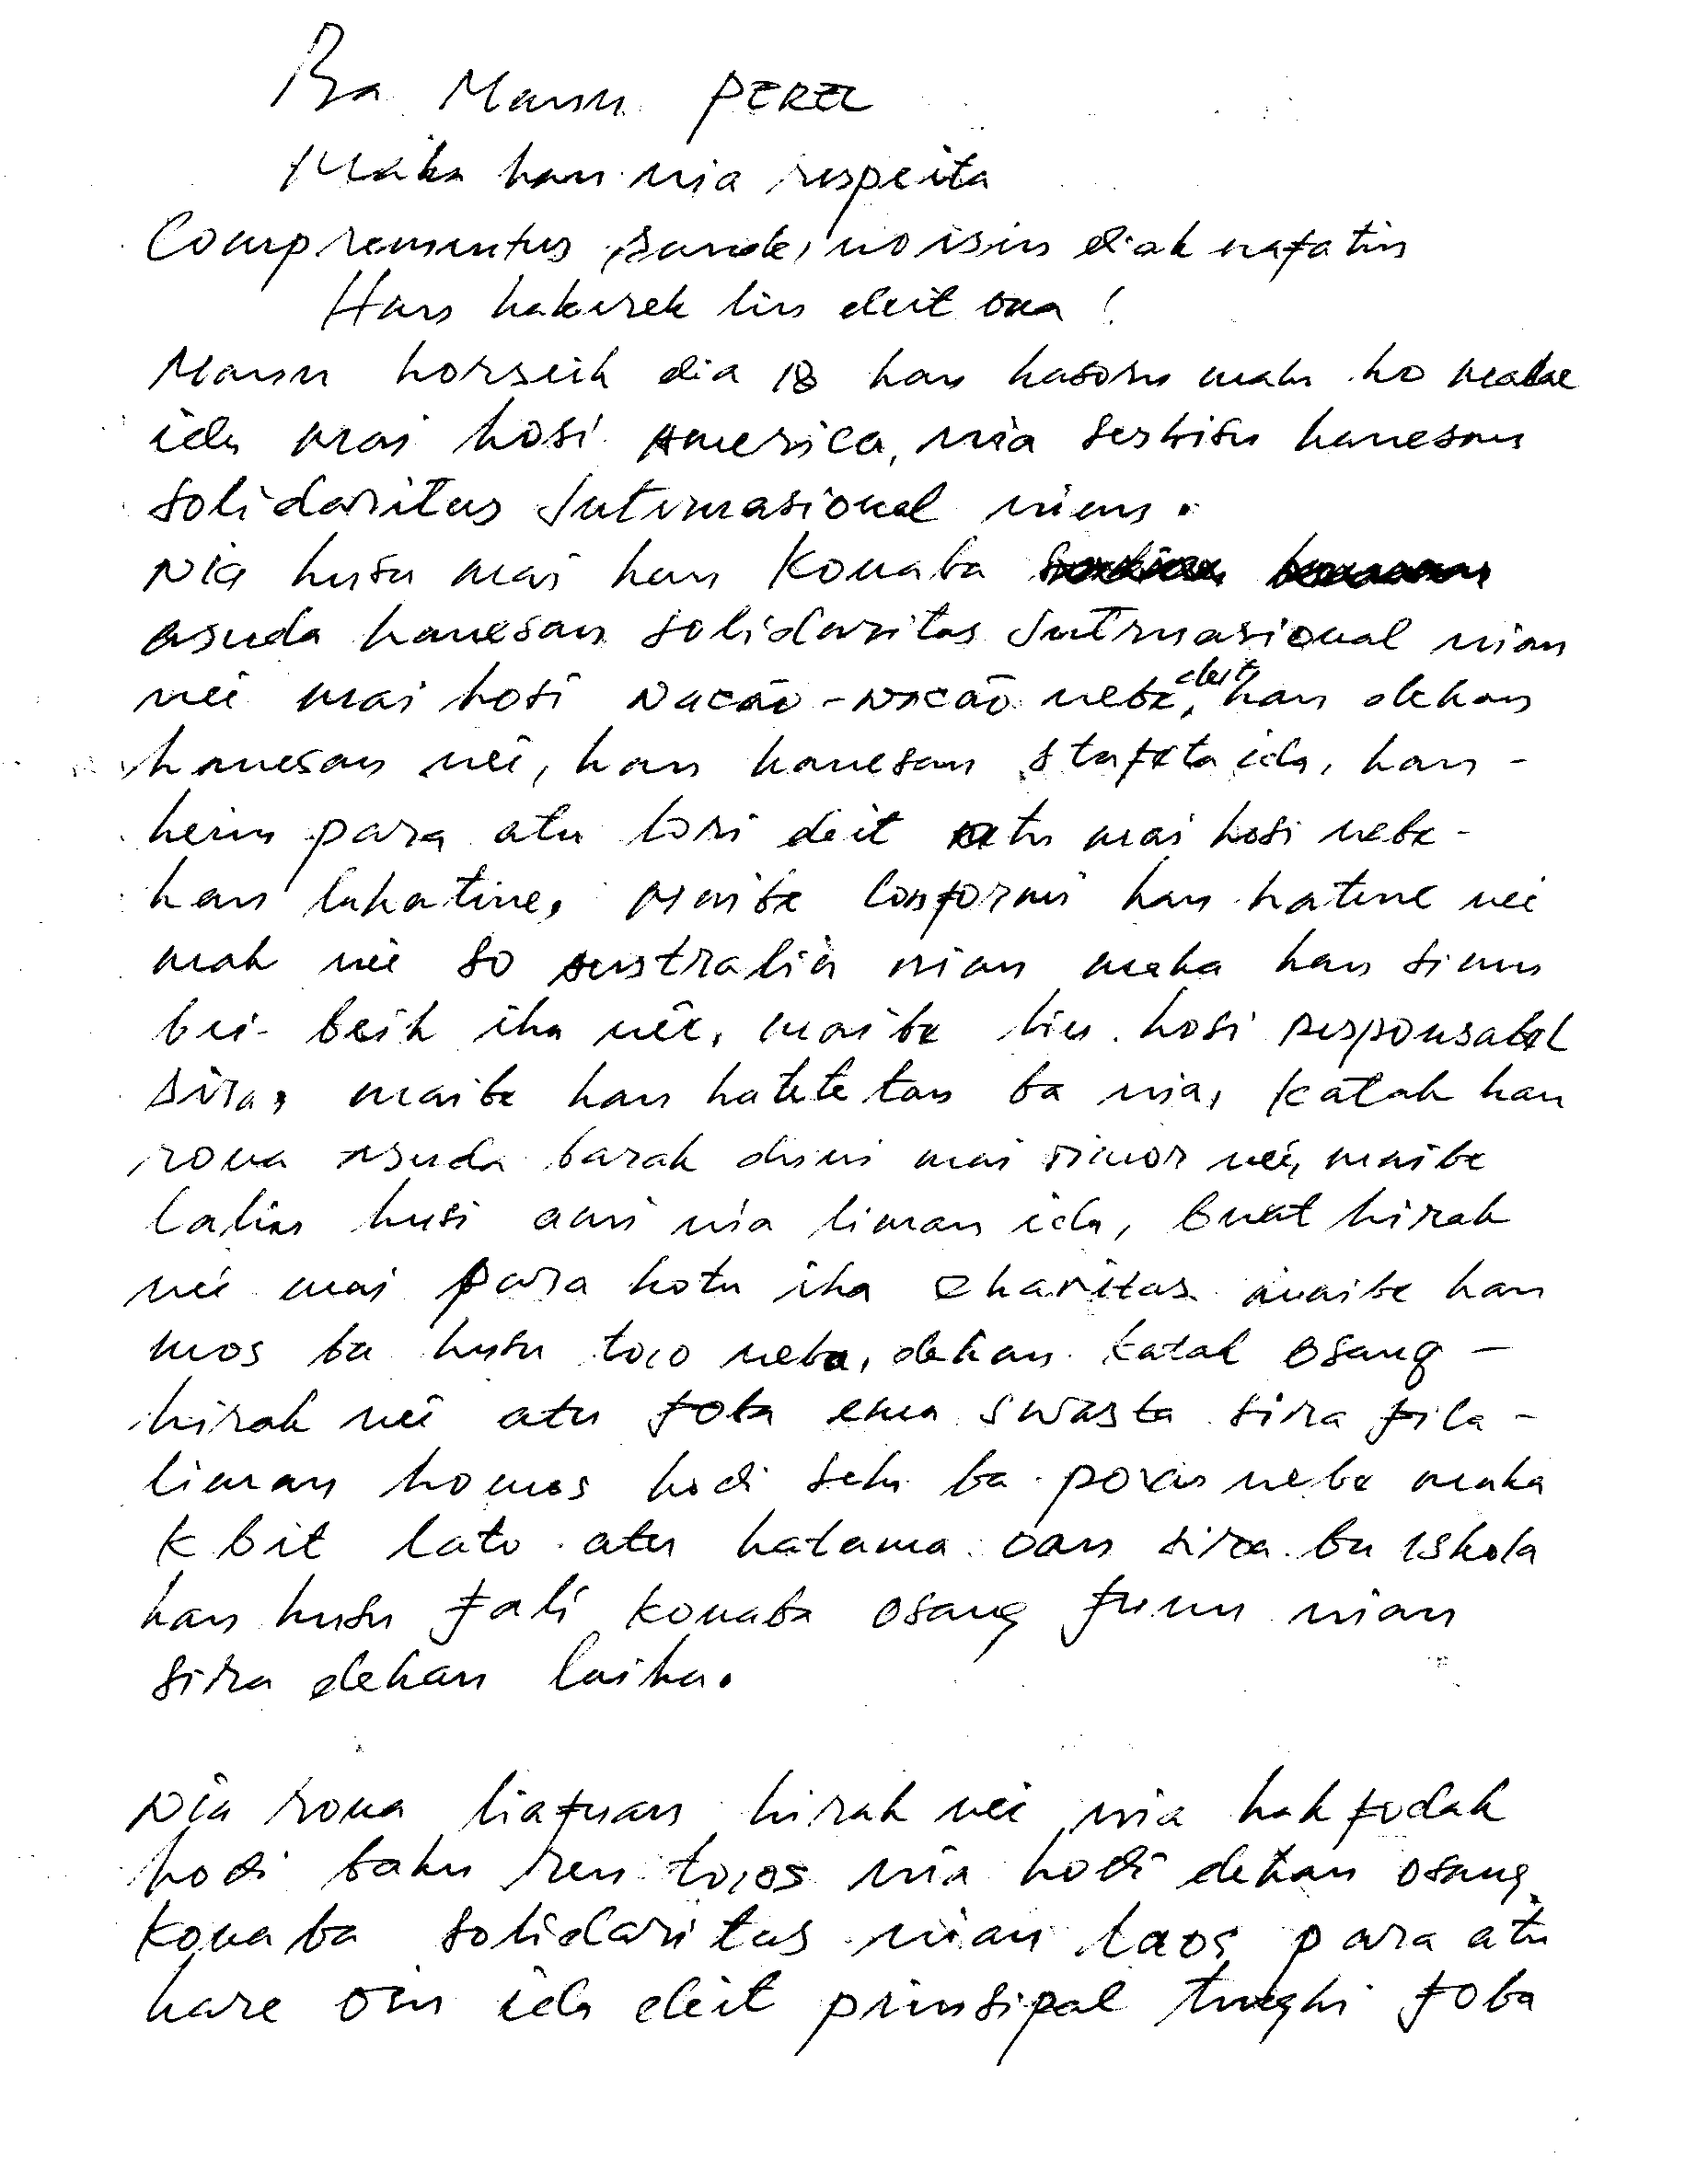 Ba Maun PEREL
Maka hau nia respeita
Comprementus, saude, no isin diak nafatin
Hau hakerek lin deit ona!
Maun horseik dia 18 hau hasoru malu ho malae
ida mai hosi America, nia serbisu hanesan
solidaritas Internasional nian.
Nia husu mai hau Konaba
asuda hanesan solidaritas Internasional nian
nei mai hosi nacão-nacão nebe deit, hau dehan
hanesan nei, hau hanesan stafeta ida, hau-
hein para atu lori deit atu mai hosi nebe-
hau lahatine, Maibe conformi hau hatene nei
mak nei so Australia nian maka hau simu
bei-beik iha nei, maibe liu hosi responsabel
sira, maibe hau hatete tan ba nia, katak hau
rona asuda barak duni mai timor nei, maibe
lalin husi ami nia liman ida, buat hirak
nei mai para hotu iha charitas maibe hau
mos ba husu too neba, dehan katak osang-
hirak nei atu foba ema swasta sira fila-
liman homos hodi selu ba povu nebe maka
kbit lato atu hatama oan sira ba iskola
hau husu fali konaba osang funu nian
sira dehan laiha.
Nia rona liafuan hirak nei nia hakfodak
hodi baku ren toos nia hodi dehan osang
konaba solidaritas nian laos para atu
hare oin ida deit prinsipal tughi foba